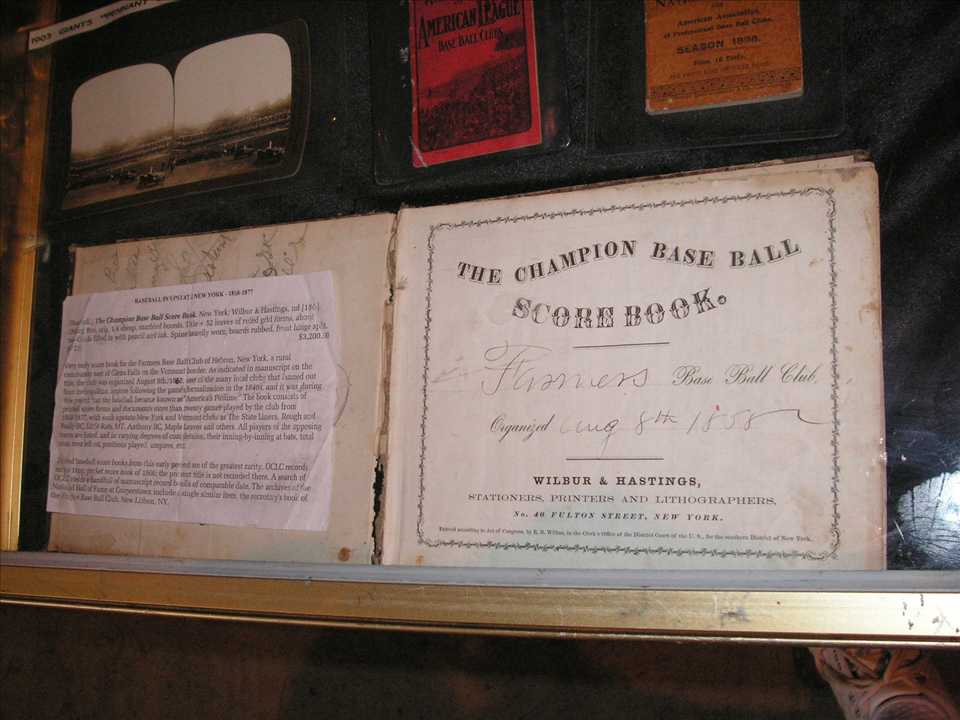 1903 GIANTS
AMERICAN LEAGUE
BASE BALL CLUBS
American Association,
of Professional Base Ball Clubs.
SEASON 1898.
THE CHAMPION BASE BALL
SCORE BOOK.
Farmers Base Ball Club,
Organized Aug 8th 1858
WILBUR & HASTINGS,
STATIONERS, PRINTERS AND LITHOGRAPHERS,
No. 40 FULTON STREET, NEW YORK.
Entered according to Act of Congress, by in the Clerk's Office of the District Court of the U. S., for the southern District of New York.
BASEBALL IN UPSTATE NEW YORK - 1858-1877
The Champion Base Ball Score Book. New York: Wilbur & Hastings,
sheep, marbled boards. Title + 52 leaves of ruled grid forms, about
filled in with pencil and ink. Spine heavily worn, boards rubbed, front hinge split.
$3,200.00
Very early score book for the Farmers Base Ball Club of Hebron, New York, a rural
community east of Glens Falls on the Vermont border. As indicated in manuscript on the
title, the club was organized August 8th, one of the many local clubs that fanned out
from the metropolitan regions following the game's formalization in the 1840s, and it was during
this period that the baseball became known as "America's Pastime." The book consists of
printed score forms and documents more than twenty games played by the club from
1858-1877, with such upstate New York and Vermont clubs as The State Liners, Rough and
Ready BC, Little Rats, MT. Anthony BC, Maple Leaves and others. All players of the opposing
teams are listed, and in varying degrees of completion, their inning-by-inning at bats, total
runs, men left on, positions played, umpires, etc.
baseball score books from this early period are of the greatest rarity. OCLC records
pocket score book of 1866; the present title is not recorded there. A search of
OCLC yields a handful of manuscript record books of comparable date. The archives of the
National Hall of Fame at Cooperstown include a single similar item, the secretary's book of
the Base Ball Club, New Lisbon, NY.